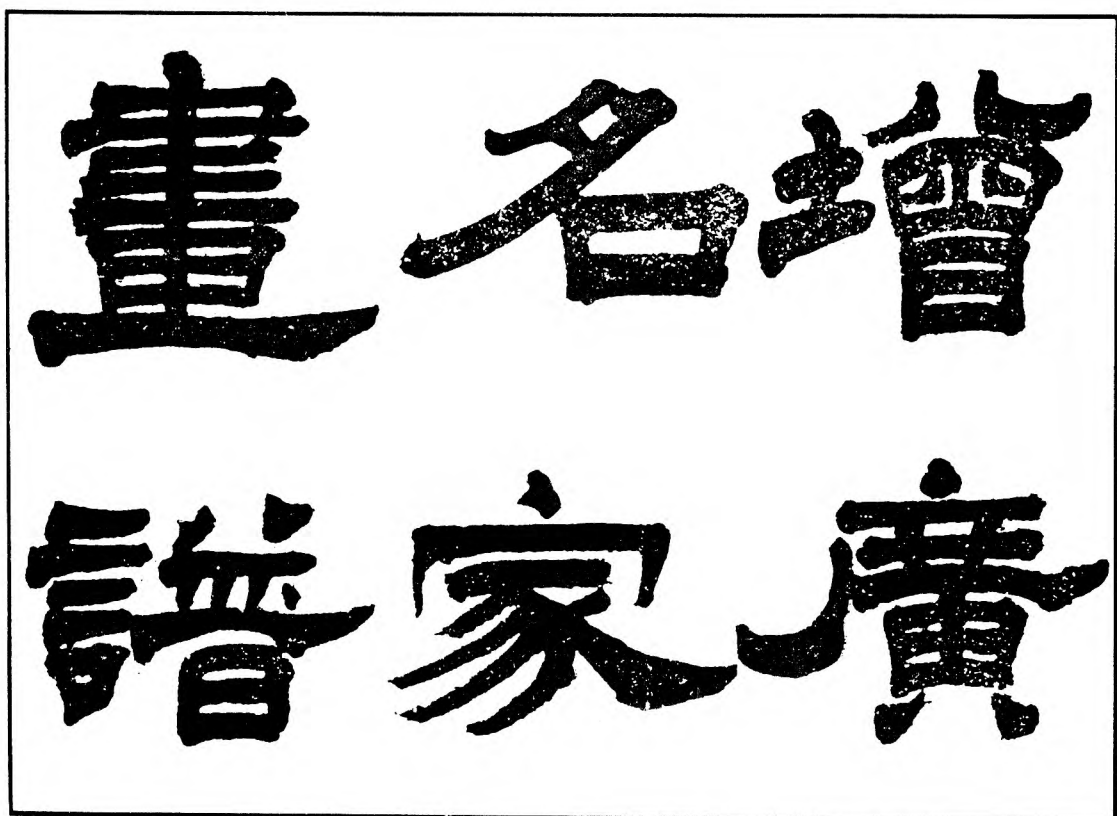 增廣
名家
畫譜